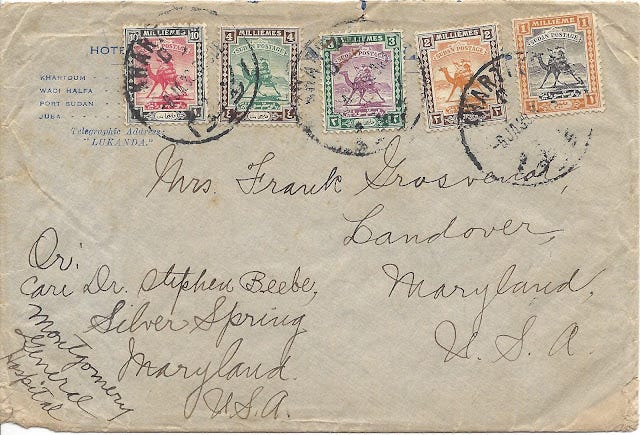 HOTE
KHARTOUM
WADI HALFA
PORT SUDAN
JUBA
Telegraphic Address:
"LUKANDA."
10 MILLIEMES 10
4 MILLIEMES 4
SUDAN POSTAGE
3 MILLIEMES 3
SUDAN POSTAGE
2 MILLIEMES 2
SUDAN POSTAGE
1 MILLIEME 1
SUDAN POSTAGE
Mrs. Frank Grosvenor,
Landover,
Maryland,
U. S. A.
Or:
Care Dr. Stephen Beebe,
Silver Spring
Maryland.
U.S.A.
Montgomery
General
Hospital